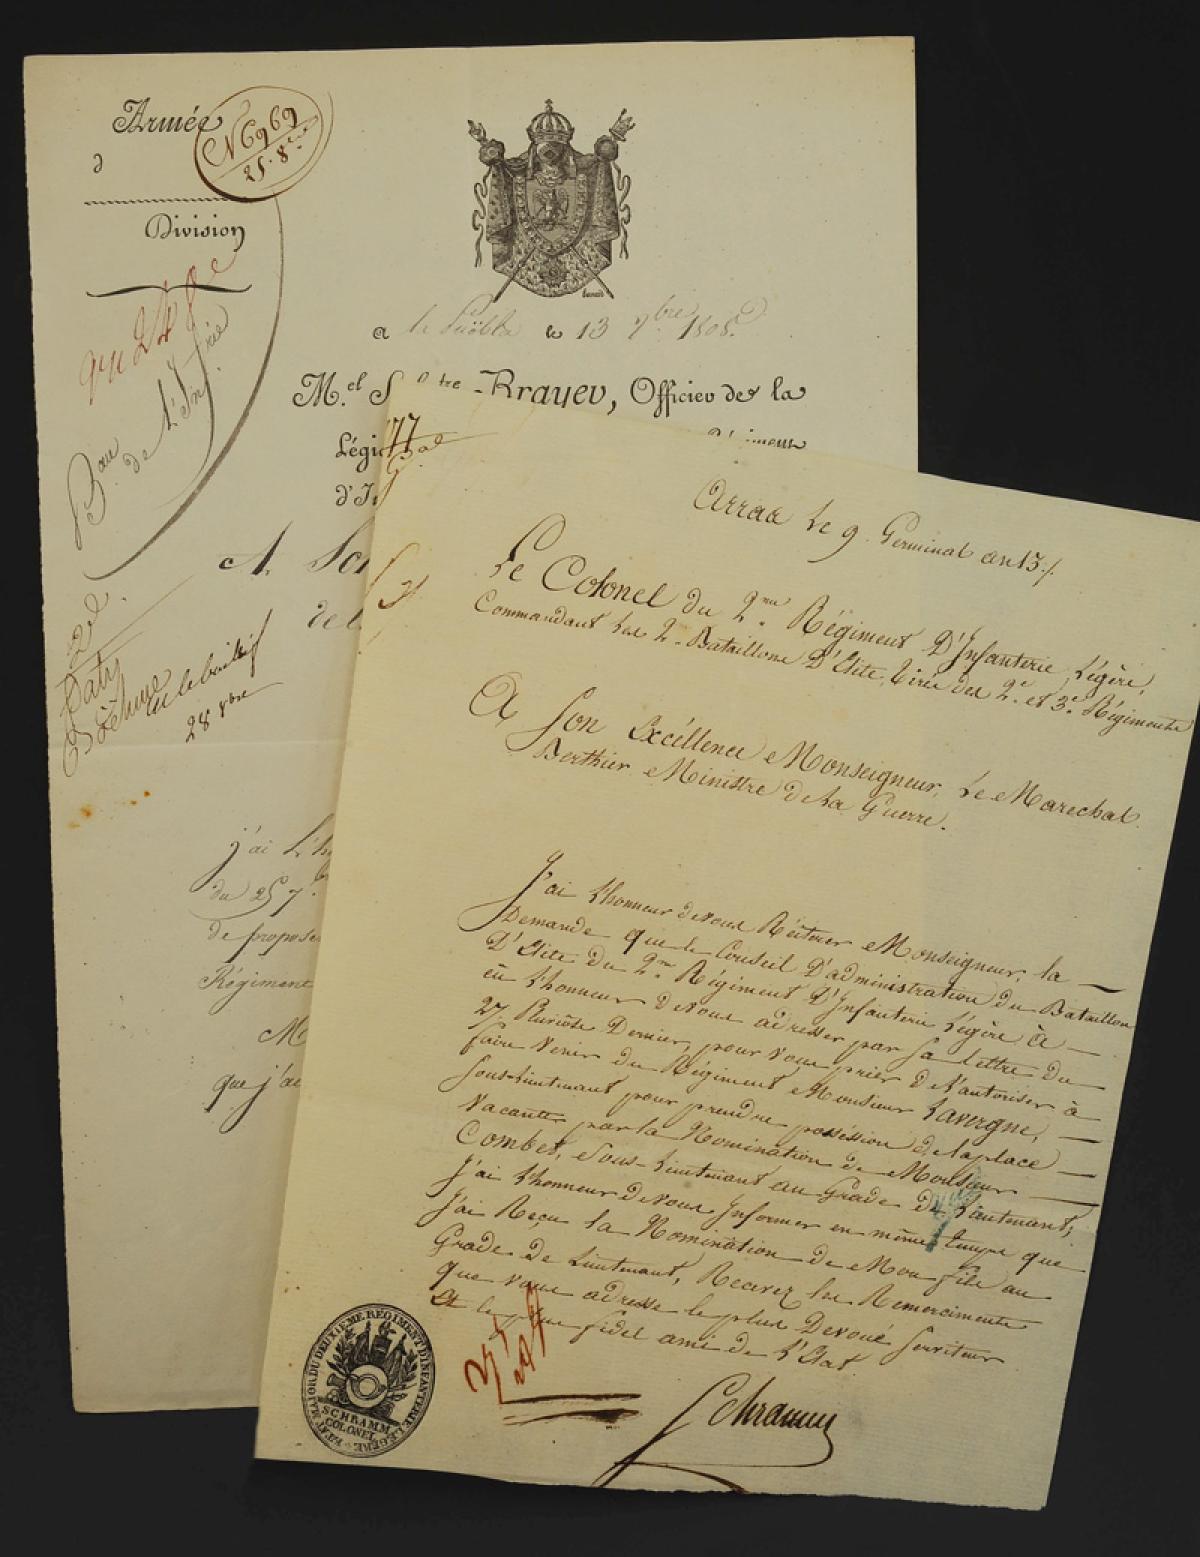 Armée
N 6969
25. 8bre
d
Division
a le 13 7bre 1808.
M.el S tre -Brayer, Officier de la
Légi
d'I
A. Son
de l
Bau de l'Infrie
28 xbre
j'ai l'h
du 25 7.b
de propose
Régiment
M
que j'ai
77
Arras le 9 Germinal an 13./.
Le Colonel du 2.me Régiment D'Infanterie Légère,
Commandant les 2. Bataillons D'Elite, tirés des 2.e et 3.e Régiments
A Son Excéllence Monseigneur, Le Marechal
Berthier Ministre de la Guerre.
J'ai l'honneur de vous Réiterer Monseigneur, la
Demande que le Conseil D'administration du Bataillon
D'Elite du 2.me Régiment D'Infanterie Légère à
eü l'honneur de vous adresser par sa lettre du
27 Pluviôse Dernier, pour vous prier de l'autoriser à
faire venir du Régiment Monsieur Lavergne,
Sous-Lieutenant pour prendre posséssion de la place
vacante par la Nomination de Monsieur
Combet, Sous-Lieutenant au Grade de Lieutenant;
J'ai l'honneur de vous Informer en même temps que
J'ai Reçu la Nomination de Mon fils au
Grade de Lieutenant, Recevez les Remerciments
que vous adresse le plus Devoué Serviteur
Et le plus fidel ami de l'Etat.
Schramm
ETAT MAJOR DU DEUXIEME REGIMENT D'INFANTERIE LEGERE
SCHRAMM
COLONEL